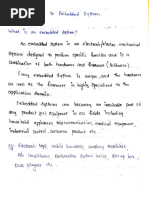 to Embedded System.
What is an embedded system?
An embedded system is an electronic/electro mechanical
system designed to perform specific function and is a
combination of both hardware and firmware (Software).
Every embedded system is unique, and the hardware
as well as the firmware is highly specialised to the
application domain.
Embedded systems are becoming an inevitable part of
any product or equipment in all fields including
household appliances, telecommunications, medical equipment,
industrial control, consumer product etc.
Eg: electronic toys, mobile handsets, washing machines,
Air conditioners, automotive control units, set top box,
DVD player etc..